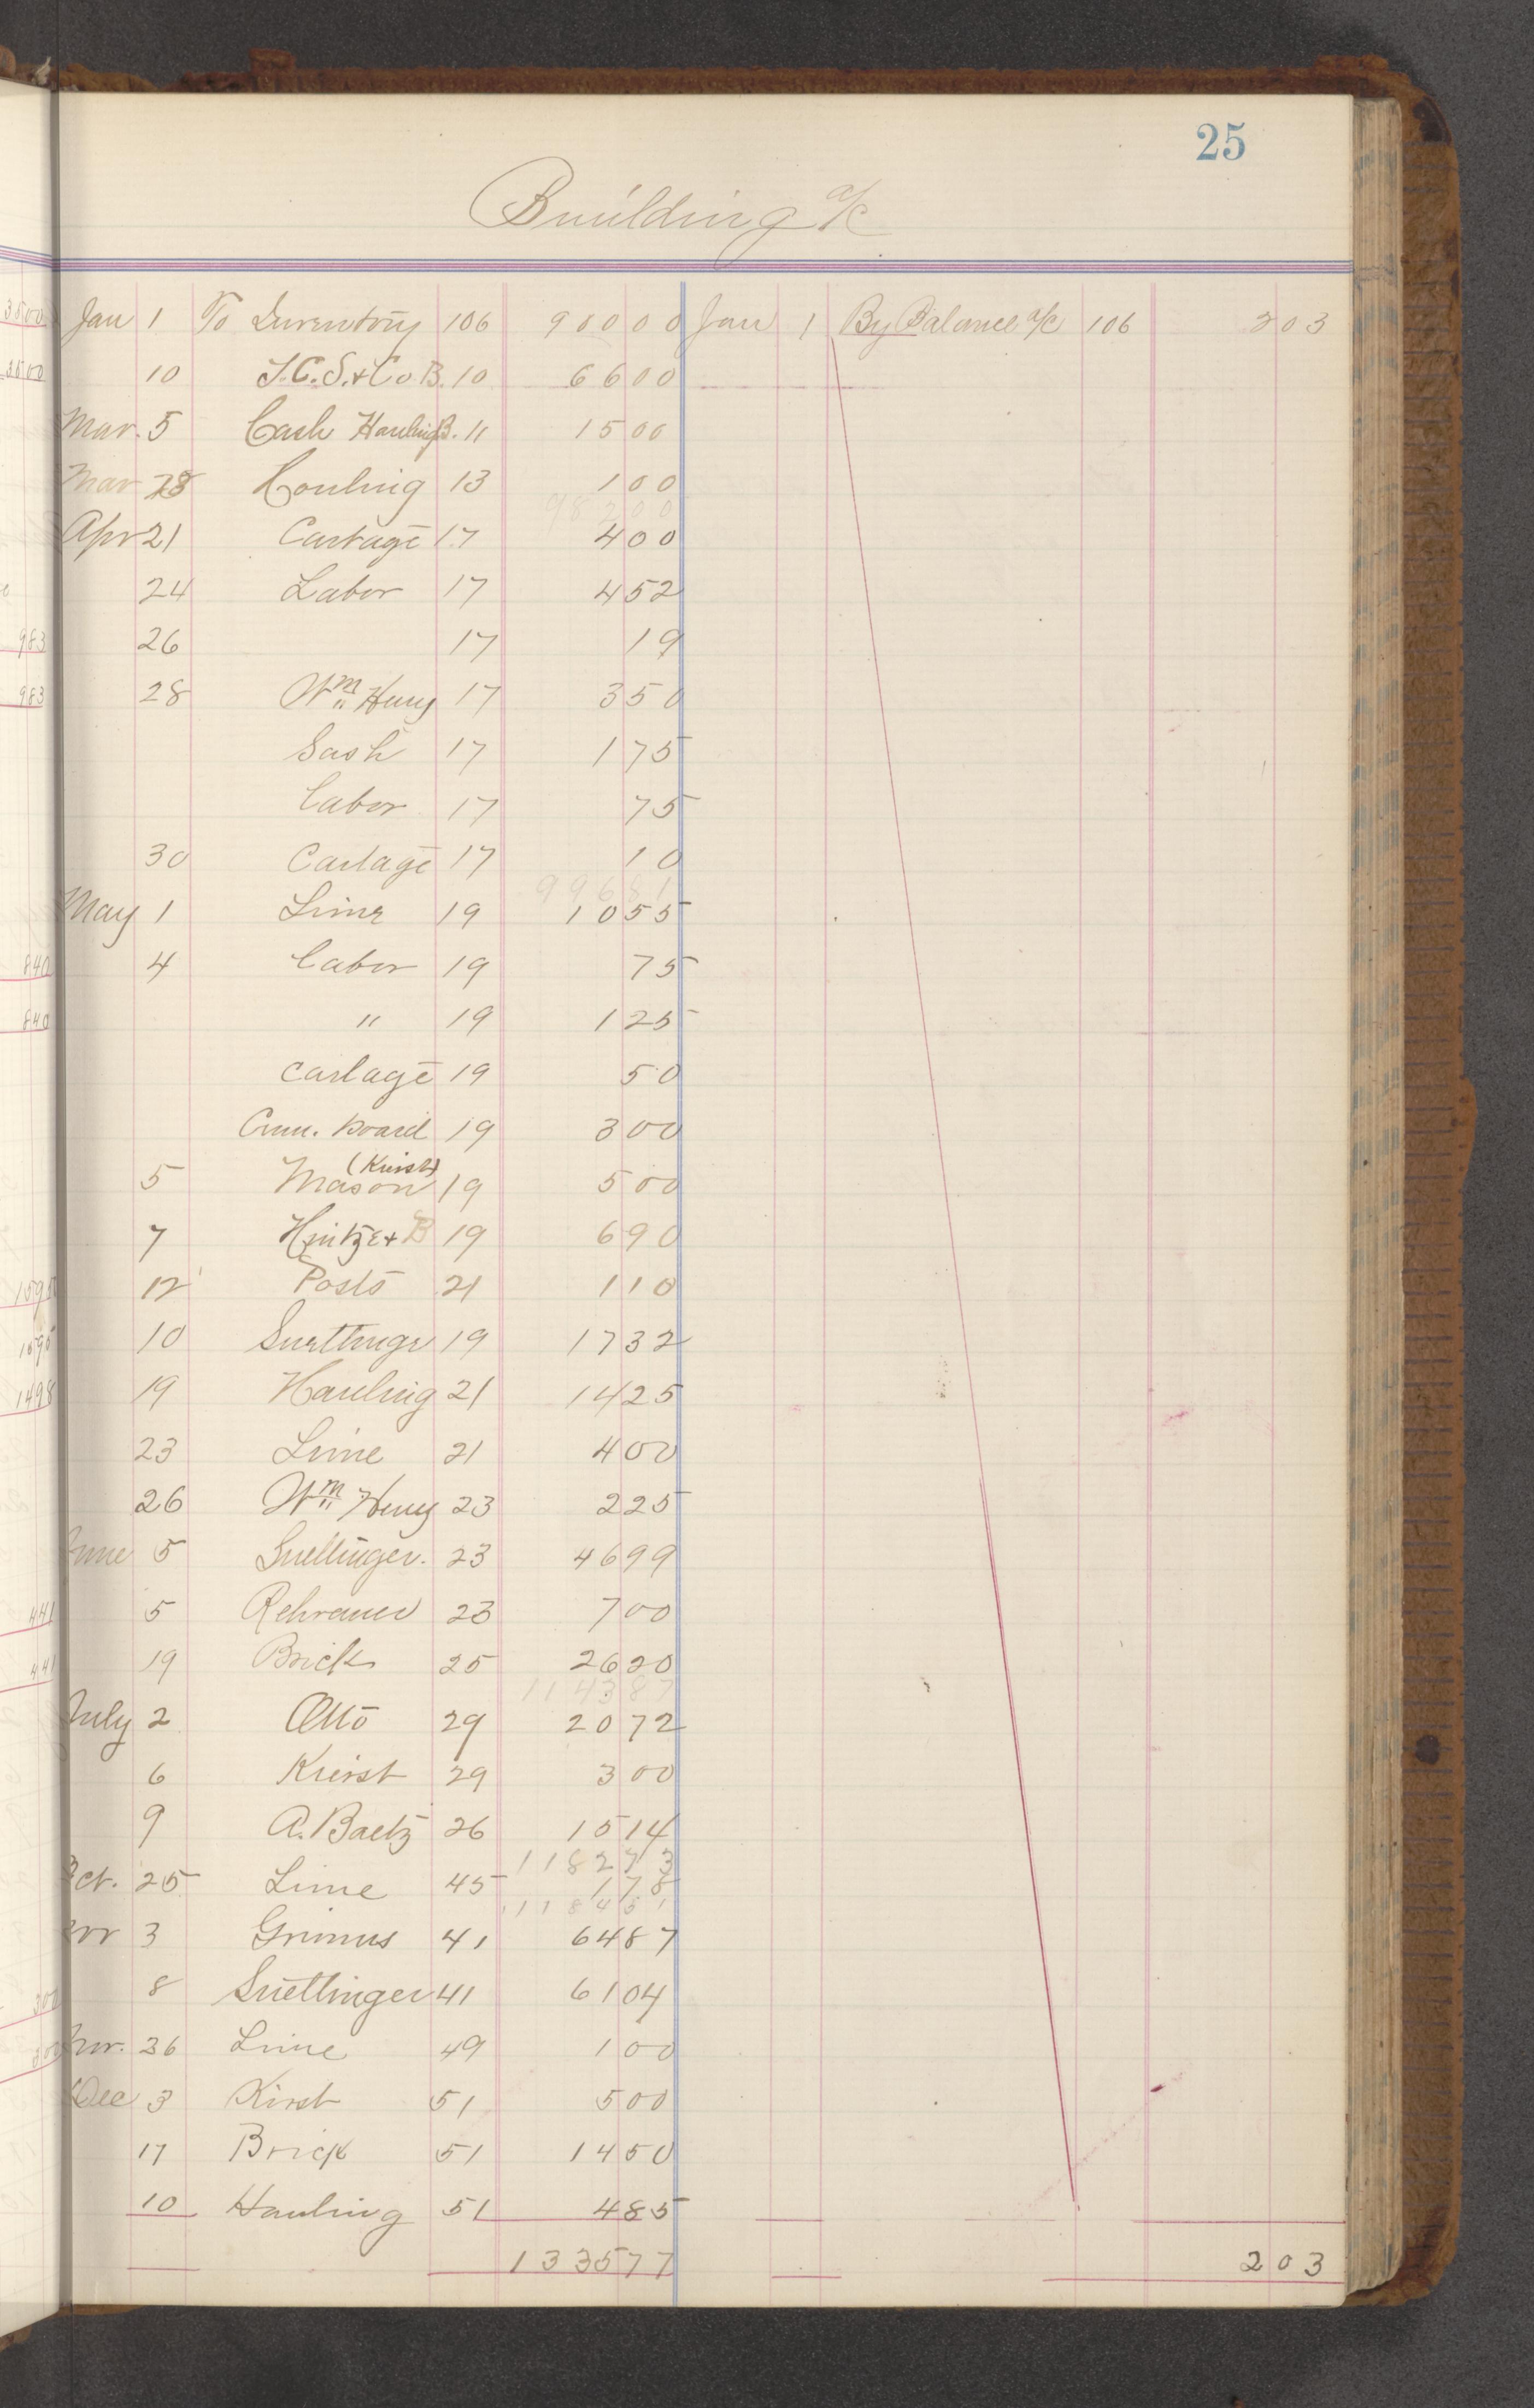 25
Building a/c
Jan 1 To Inventory 106 90000 Jan 1 By Balance a/c 106 203
10 J.C.S. + Co B. 10 6600
Mar. 5 Cash Hauling B. 11 1500
Mar 28 Houling 13 100
98200
Apr 21 Cartage 17 400
24 Labor 17 452
26 17 19
28 Wm Henry 17 350
Sash 17 175
Labor 17 75
30 Cartage 17 10
99681
May 1 Lime 19 1055
4 Labor 19 75
" 19 125
Cartage 19 50
board 19 300
(Kirst)
5 Mason 19 500
7 Hintze + B 19 690
12 Posts 21 110
10 19 1732
19 Hauling 21 1425
23 Lime 21 400
26 Wm Henry 23 225
June 5 Suellinger. 23 4699
5 23 700
19 Brick 25 2620
114387
July 2 Otto 29 2072
6 Kuirst 29 300
9 A. Baetz 26 1514
118273
Oct. 25 Lime 45 178
118451
Nov 3 Grimus 41 6487
8 Suettinger 41 6104
Nov. 26 Lime 49 100
Dec 3 Kirst 51 500
17 Brick 51 1450
10 Hauling 51 485
133577 203